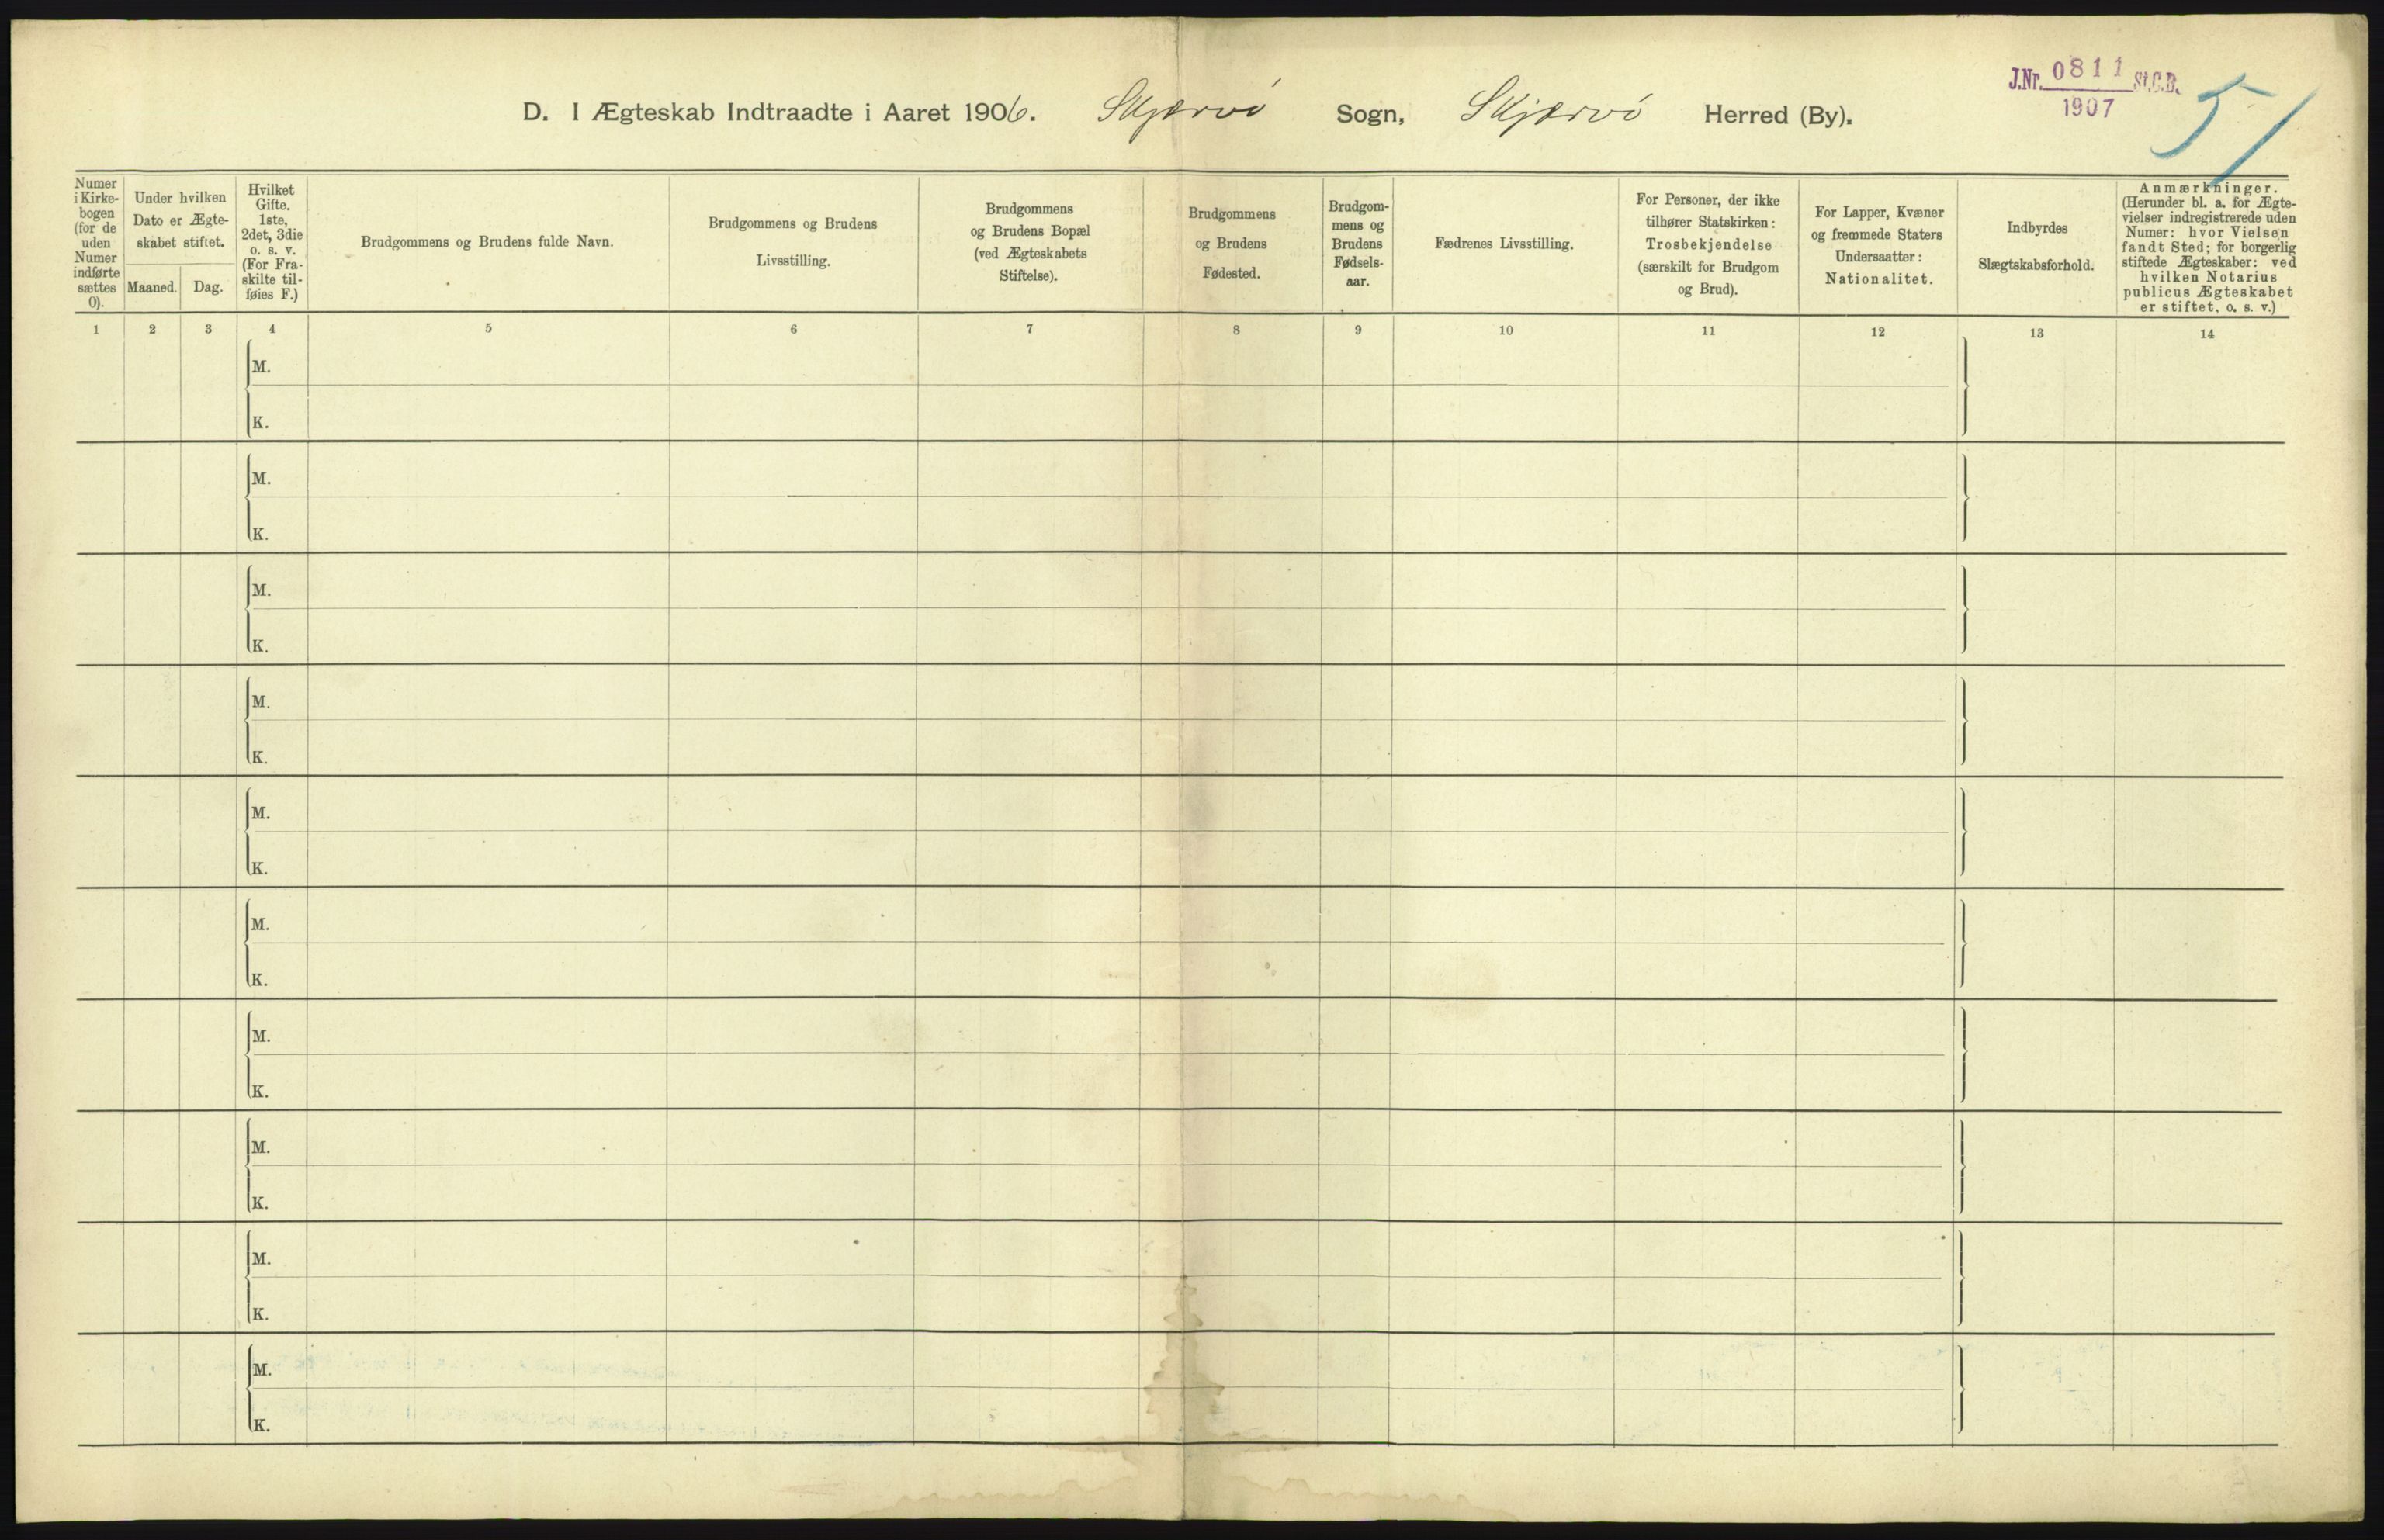 J.Nr. 0811 St.C.B.
1907
51
D. I Ægteskab Indtraadte i Aaret 1906. Skjærvö Sogn, Skjærvö Herred (By).
Numer
i Kirke-
bogen
(for de
uden
Numer
indførte
sættes
0).
Under hvilken
Dato er Ægte-
skabet stiftet.
Maaned.
Dag.
Hvilket
Gifte.
1ste,
2det, 3die
o. s. v.
(For Fra-
skilte til-
føies F.)
Brudgommens og Brudens fulde Navn.
Brudgommens og Brudens
Livsstilling.
Brudgommens
og Brudens Bopæl
(ved Ægteskabets
Stiftelse).
Brudgommens
og Brudens
Fødested.
Brudgom-
mens og
Brudens
Fødsels-
aar.
Fædrenes Livsstilling.
For Personer, der ikke
tilhører Statskirken:
Trosbekjendelse
(særskilt for Brudgom
og Brud).
For Lapper, Kvæner
og fremmede Staters
Undersaatter:
Nationalitet.
Indbyrdes
Slægtskabsforhold.
Anmærkninger.
(Herunder bl. a. for Ægte-
vielser indregistrerede uden
Numer: hvor Vielsen
fandt Sted; for borgerlig
stiftede Ægteskaber: ved
hvilken Notarius
publicus Ægteskabet
er stiftet, o. s. v.)
1 2 3 4 5 6 7 8 9 10 11 12 13 14
M.
K.
M.
K.
M.
K.
M.
K.
M.
K.
M.
K.
M.
K.
M.
K.
M.
K.
M.
K.